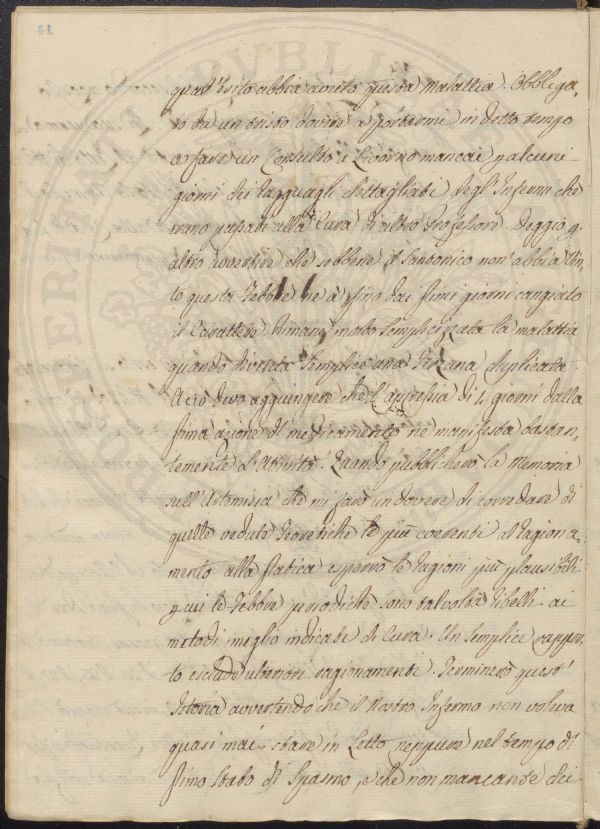 qual'esito abbia avuto questa Malattia. Obbliga-
to da un tristo dovere a portarmi in detto tempo
a fare un Consulto a Livorno mancai p alcuni
giorni dei ragguagli dettagliati degl'Infermi che
erano passati alla Cura di altro Professore. Deggio p
altro avvertire che sebbene il Santonico non abbia Vin-
to questa Febbre ne à fino dai primi giorni cangiato
il Carattere. Rimane molto semplicizzata la malattia
quando diventa semplice una Terzana duplicata
A ciò devo aggiungere che l'apiressia di 4 giorni dalla
prima azione del medicamento ne manifesta bastan-
temente l'Attività. Quando pubblicherò la Memoria
sull'Artemisia che mi farò un dovere di corredare di
quelle vedute Teoretiche le più coerenti al ragiona-
mento alla pratica esporrò le ragioni più plausibili
p cui le Febbri periodiche sono talvolta ribelli ai
metodi meglio indicati di Cura. Un semplice rappor-
to esclude ulteriori ragionamenti. Terminerò quest'
Istoria avvertendo che il Nostro Infermo non voleva
quasi mai stare in Letto neppure nel tempo di
primo stato di Spasmo, e che non mancante dei